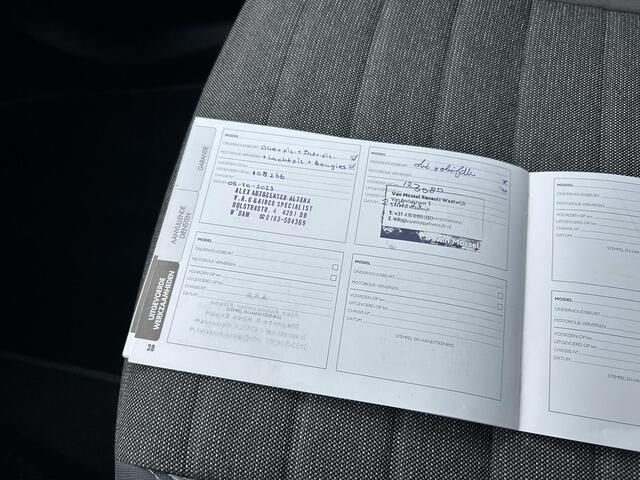 GARANTIE
AANVULLENDE
DIENSTEN
UITGEVOERDE
WERKZAAMHEDEN
28
MODEL
ONDERHOUDSBEURT
MOTOROLIE VERVERSEN + Luchtfil. + Bougies
VOORZIEN OP km
UITGEVOERD OP km 108266
CHASSIS N°
DATUM 05-10-2023
ALEX AUTOCENTER ALTENA
V.A.G & AIRCO SPECIALIST
4251 DB
W'DAM ☎0183-504369
MODEL
ONDERHOUDSBEURT olie + oliefilter
MOTOROLIE VERVERSEN
VOORZIEN OP km
UITGEVOERD OP km 123080
CHASSIS N°
DATUM
Van Mossel Renault Waalwijk
van Mossel
MODEL
ONDERHOUDSBEURT
MOTOROLIE VERVERSEN
VOORZIEN OP km
UITGEVOERD OP km
CHASSIS N°
DATUM
STEMPEL EN HANDTEKENING
MODEL
ONDERHOUDSBEURT
MOTOROLIE VERVERSEN
VOORZIEN OP km
UITGEVOERD OP km
CHASSIS N°
DATUM
STEMPEL EN HANDTEKENING
MODEL
ONDERHOUDSBEURT
MOTOROLIE VERVERSEN
VOORZIEN OP km
UITGEVOERD OP km
CHASSIS N°
DATUM
STEMPEL EN
MODEL
ONDERHOUDSBEURT
MOTOROLIE VERVERSEN
VOORZIEN OP km
UITGEVOERD OP km
CHASSIS N°
DATUM
STEMPEL EN HAN